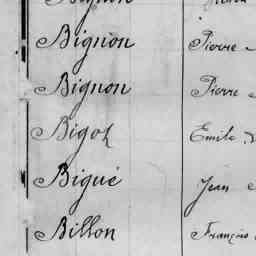 Bignon Pierre
Bignon Pierre
Bigot Emile
Bigué Jean
Billon François